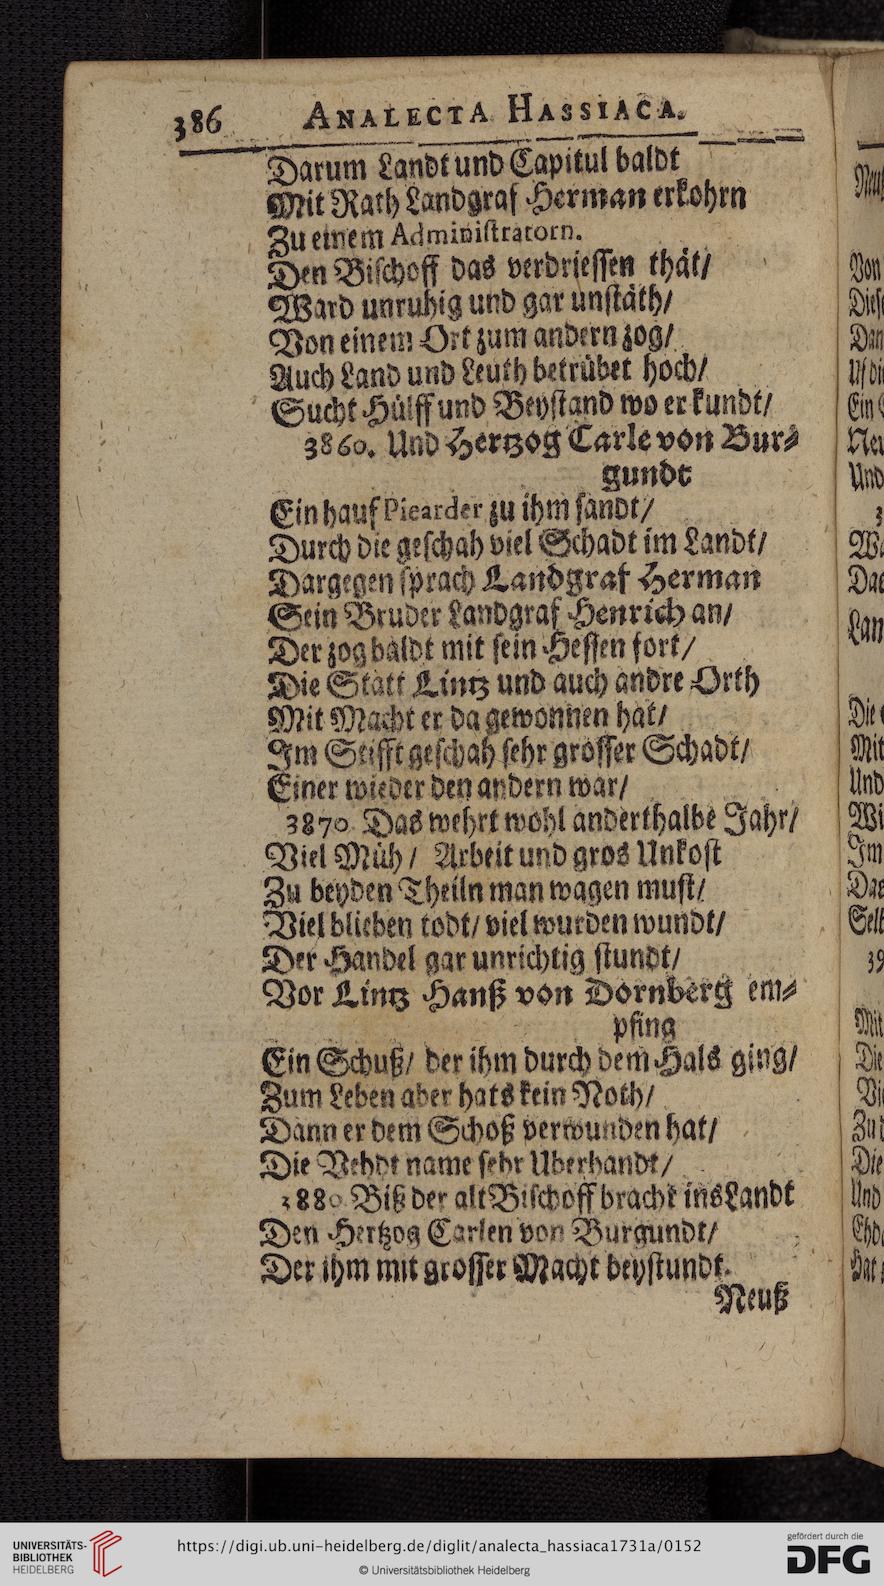 386 ANALECTA HASSIACA.
Darum Landt und Capitul baldt
Mit Rath Landgraf Herman erkohrn
Zu einem Administratorn.
Den Bischoff das verdriessen thät/
Ward unruhig und gar unstäth/
Von einem Ort zum andern zog/
Auch Land und Leuth betrübet hoch/
Sucht Hülff und Beystand wo er kundt/
3860. Und Hertzog Carle von Bur⸗
gundt
Ein hauf Piearder zu ihm sandt/
Durch die geschah viel Schadt im Landt/
Dargegen sprach Landgraf Herman
Sein Bruder Landgraf Henrich an/
Der zog baldt mit sein Hessen fort/
Die Statt Lintz und auch andre Orth
Mit Macht er da gewonnen hat/
Im Stifft geschah sehr grosser Schadt/
Einer wieder den andern war/
3870. Das wehrt wohl anderthalbe Jahr/
Viel Müh/ Arbeit und gros Unkost
Zu beyden Theiln man wagen must/
Viel blieben todt/ viel wurden wundt/
Der Handel gar unrichtig stundt/
Vor Lintz Hanß von Dörnberg em⸗
pfing
Ein Schuß/ der ihm durch dem Hals ging/
Zum Leben aber hats kein Noth/
Dann er dem Schoß verwunden hat/
Die Vehdt name sehr Uberhandt/
3880 Biß der alt Bischoff bracht ins Landt
Den Hertzog Carlen von Burgundt/
Der ihm mit grosser Macht beystundt.
Neuß
Von
Dan
Und
Die
Mit
Und
Im
39
Mit
Die
Die
Und
UNIVERSITÄTS-
BIBLIOTHEK
HEIDELBERG
https://digi.ub.uni-heidelberg.de/diglit/analecta_hassiaca1731a/0152
© Universitätsbibliothek Heidelberg
gefördert durch die
DFG